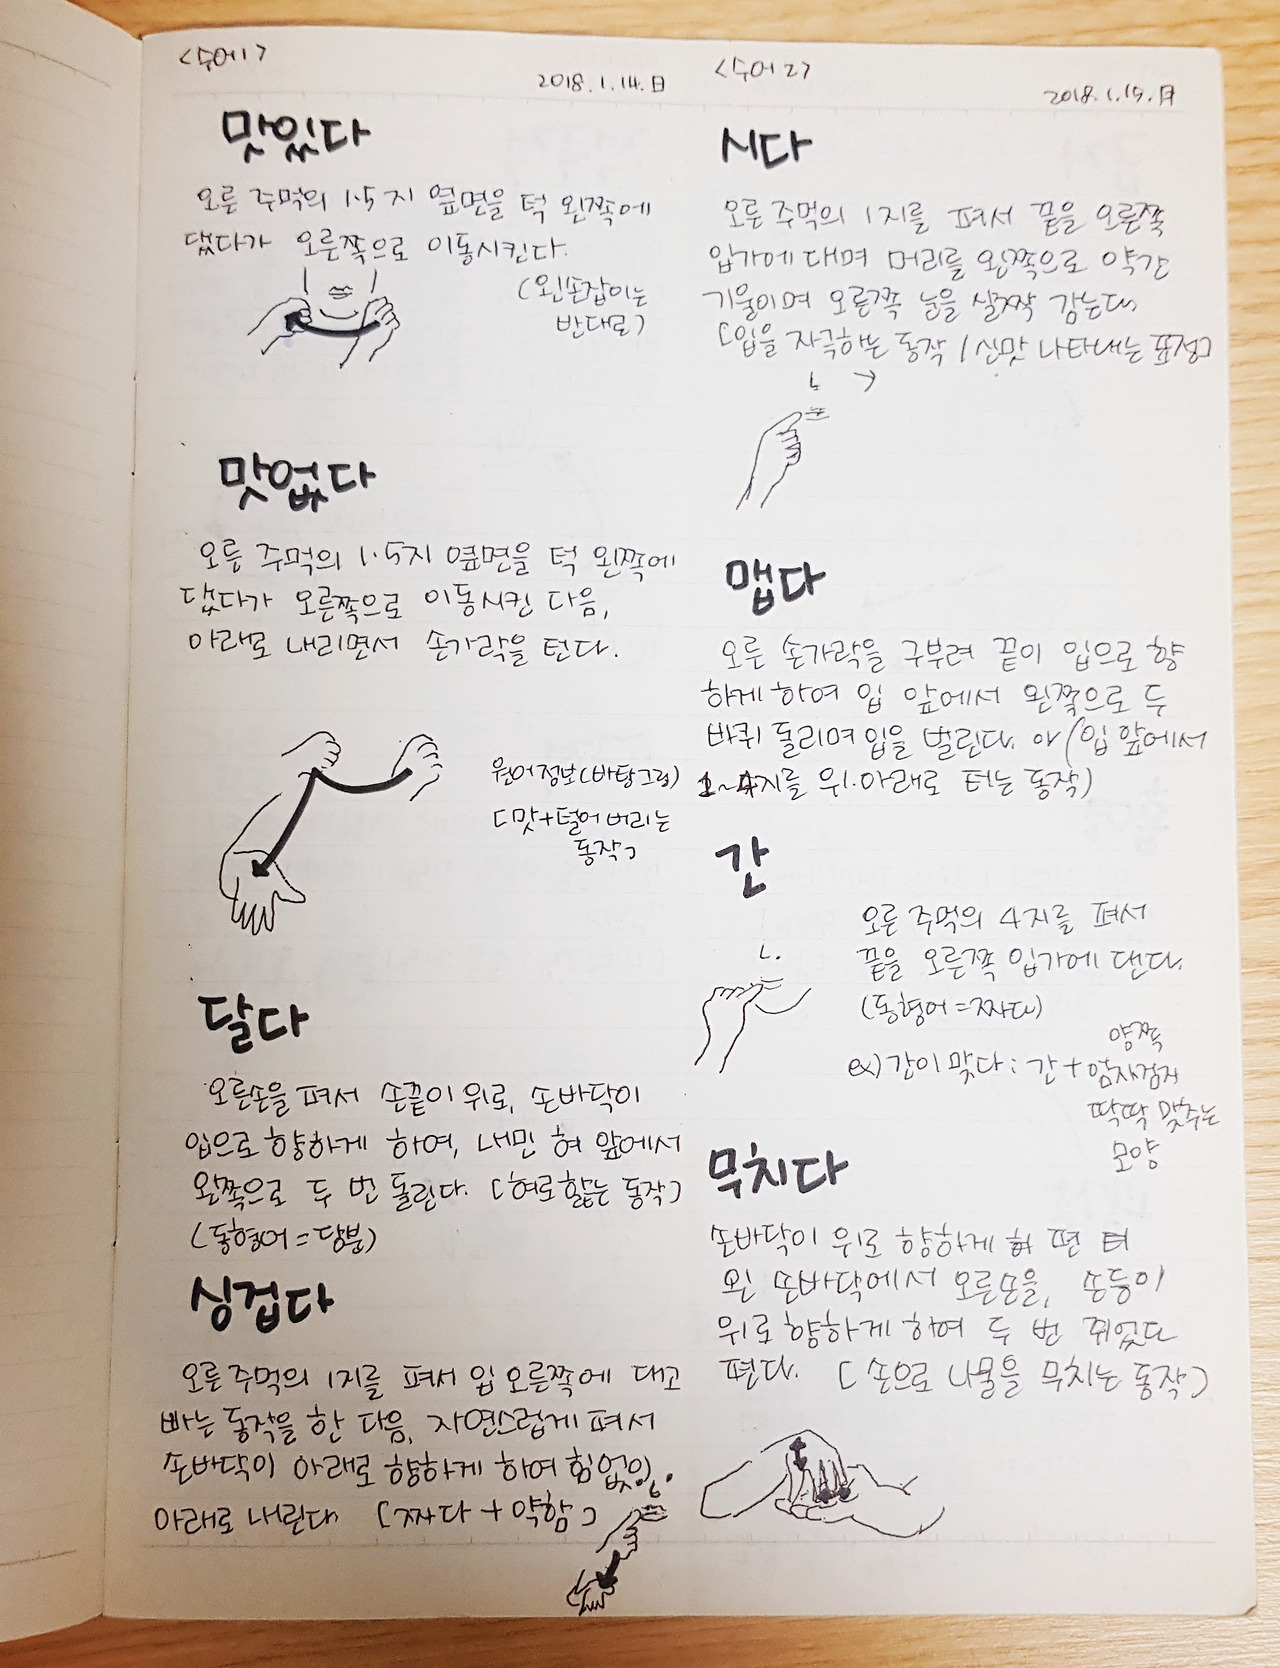 <수어1>
2018.1.14.日
맛있다
오른 주먹의 1·5지 옆면을 턱 왼쪽에
댔다가 오른쪽으로 이동시킨다.
(왼손잡이는
반대로)
맛없다
오른 주먹의 1·5지 옆면을 턱 왼쪽에
댔다가 오른쪽으로 이동시킨 다음,
아래로 내리면서 손가락을 턴다.
원어정보(바탕그림)
[맛+털어버리는
동작]
달다
오른손을 펴서 손끝이 위로, 손바닥이
입으로 향하게 하여, 내민 혀 앞에서
왼쪽으로 두 번 돌린다. [혀로 핥는 동작]
(동형어=당분)
싱겁다
오른 주먹의 1지를 펴서 입 오른쪽에 대고
빠는 동작을 한 다음, 자연스럽게 펴서
손바닥이 아래로 향하게 하여 힘없이
아래로 내린다. [짜다 + 약함]
<수어2>
2018.1.15.月
시다
오른 주먹의 1지를 펴서 끝을 오른쪽
입가에 대며 머리를 왼쪽으로 약간
기울이며 오른쪽 눈을 살짝 감는다.
[입을 자극하는 동작 / 신맛 나타내는 표정]
맵다
오른 손가락을 구부려 끝이 입으로 향
하게 하여 입 앞에서 왼쪽으로 두
바퀴 돌리며 입을 벌린다. or (입 앞에서
1~4지를 위·아래로 터는 동작)
간
오른 주먹의 4지를 펴서
끝을 오른쪽 입가에 댄다.
(동형어=짜다)
ex) 간이 맞다 : 간 + 양쪽
엄지검지
딱딱 맞추는
모양
무치다
손바닥이 위로 향하게 편
왼 손바닥에서 오른손을, 손등이
위로 향하게 하여 두 번 쥐었다
편다. [손으로 나물을 무치는 동작]